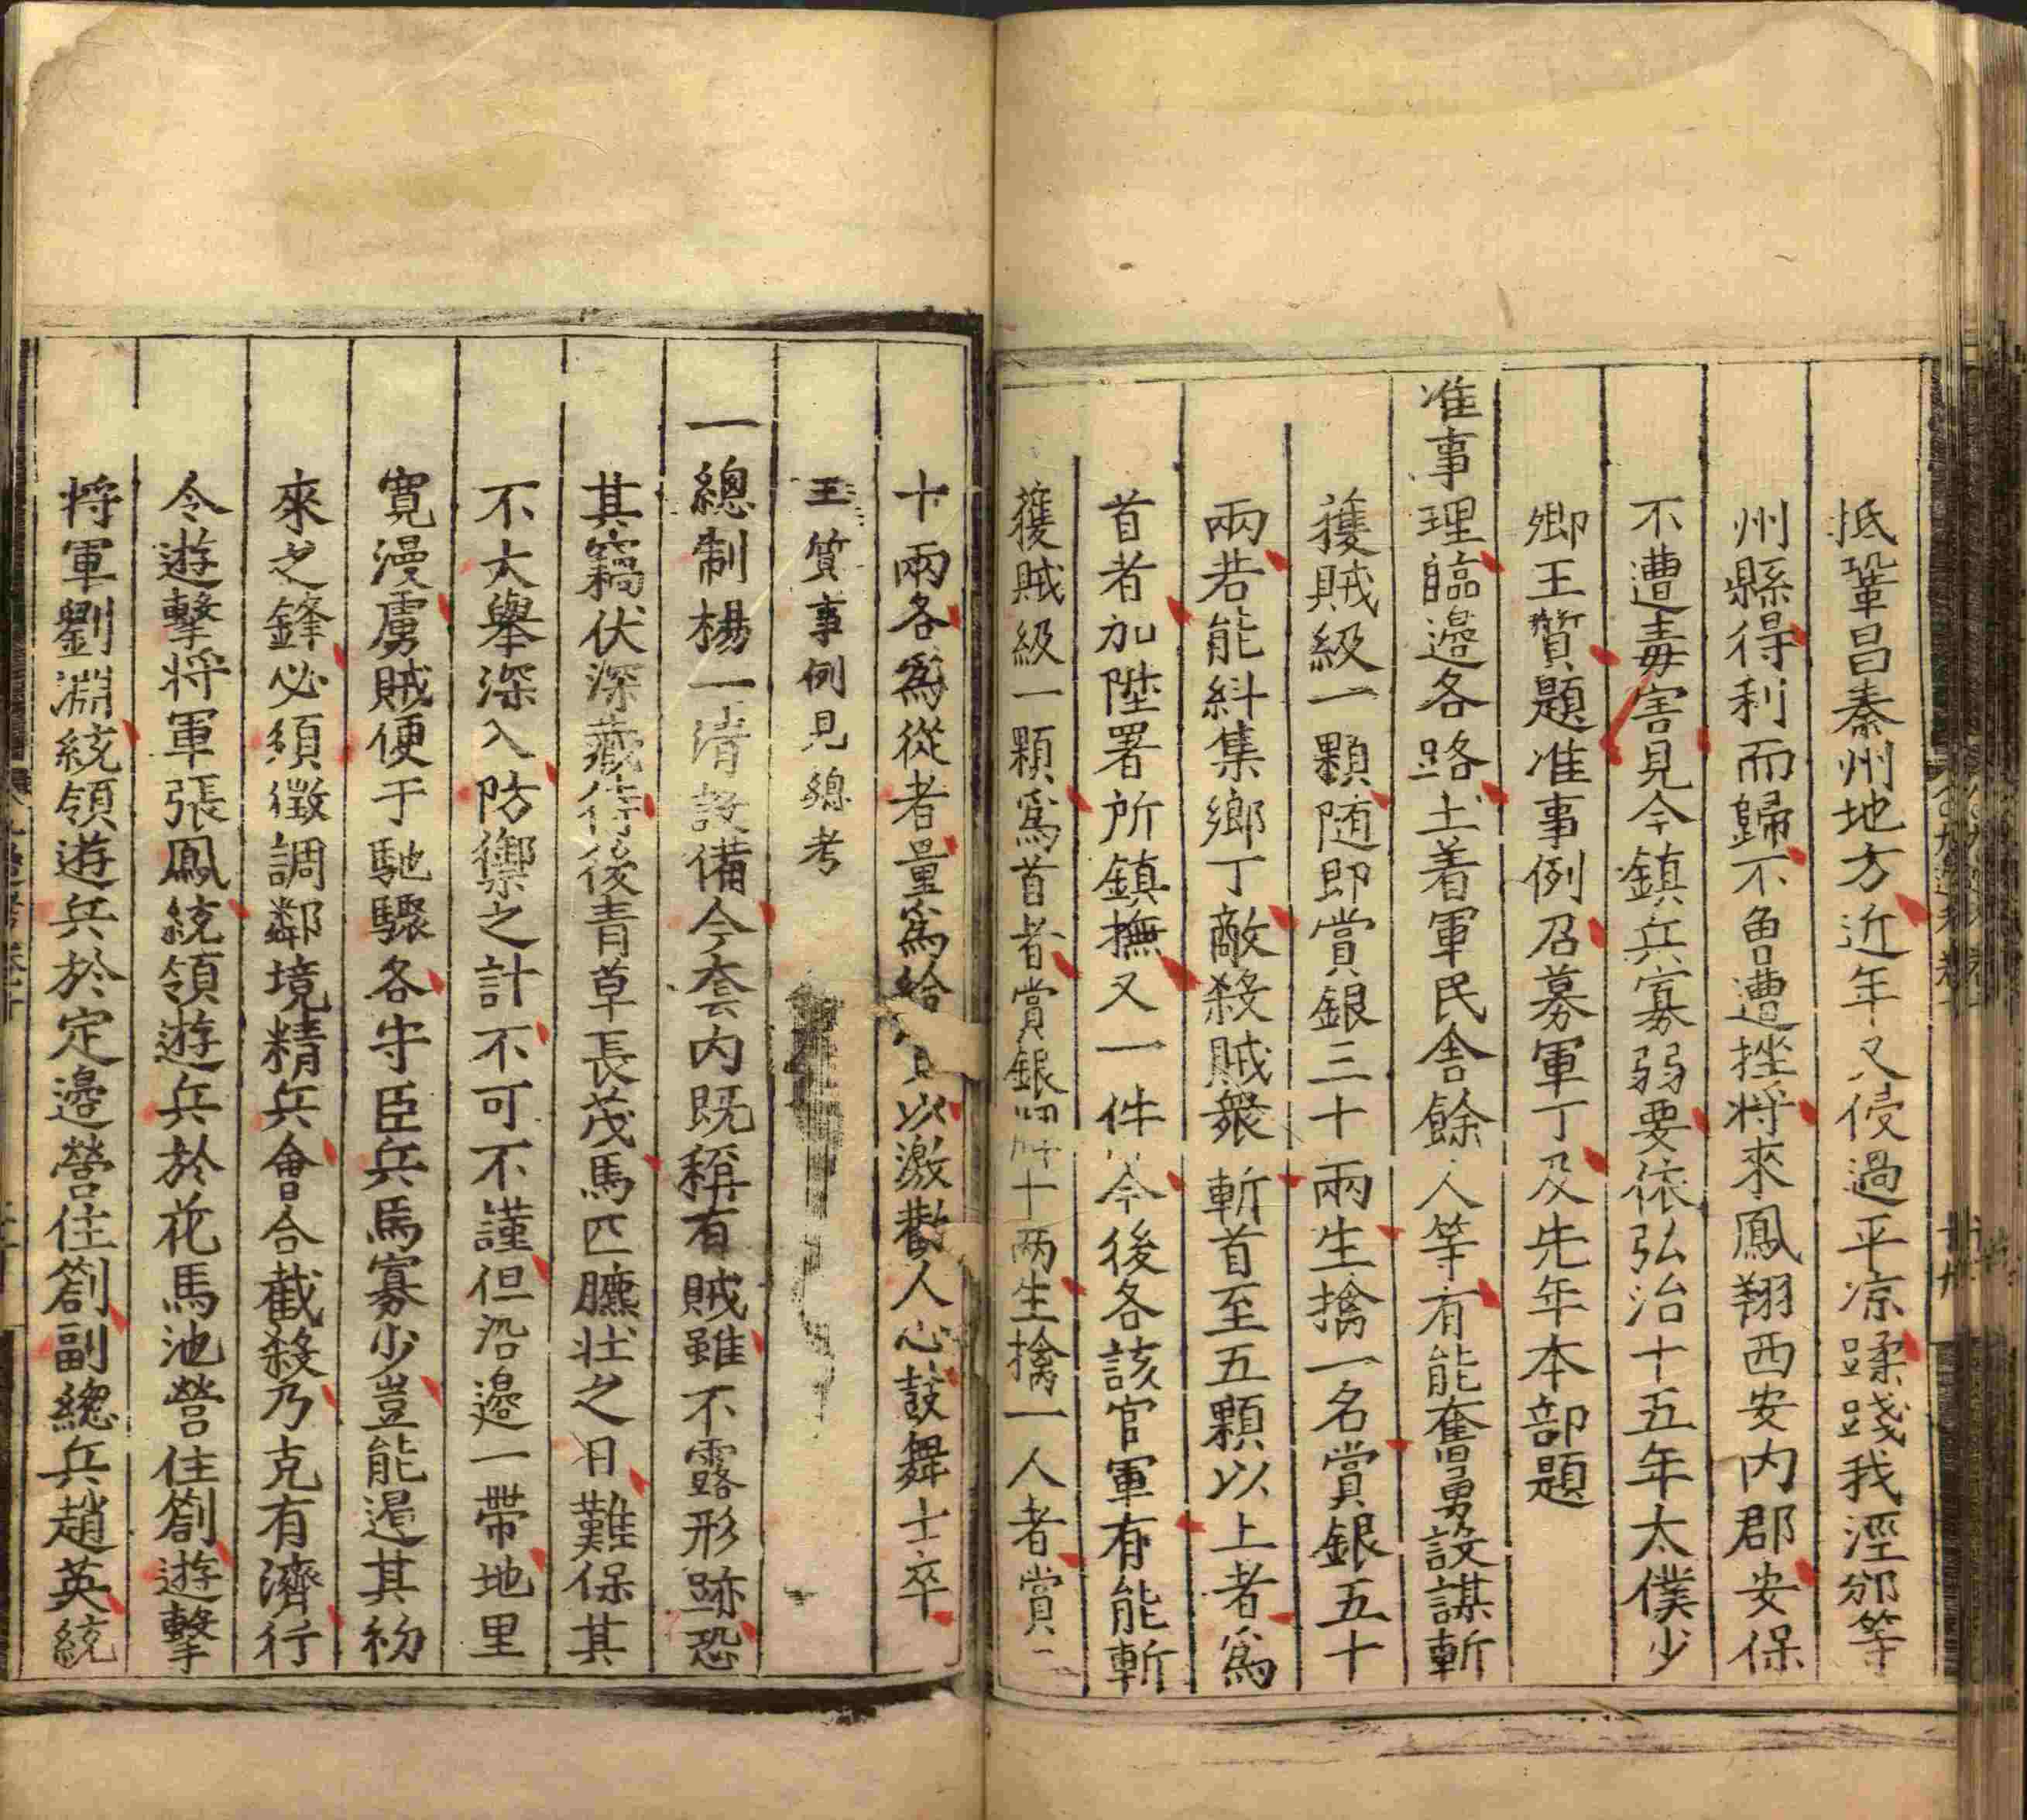 抵鞏昌秦州地方近年又侵過平凉蹂踐我涇邠等
州縣得利而歸不曾遭挫将來鳳翔西安内郡安保
不遭毒害見今鎮兵寡弱要依弘治十五年太僕少
卿王質題准事例召募軍丁及先年本部題
准事理臨邉各路土着軍民舍餘人等有能奮勇設謀斬
獲賊級一顆随即賞銀三十兩生擒一名賞銀五十
兩若能糾集鄉丁敵殺賊衆斬首至五顆以上者爲
首者加陞署所鎮撫又一件今後各該官軍有能斬
獲賊級一顆爲首者賞銀十兩生擒一人者賞
十兩各爲從者量爲給以激勸人心鼓舞士卒
王質事例見總考
一總制楊一清設備今套内既稱有賊雖不露形跡恐
其竊伏深藏待後青草長茂馬匹臕壮之日難保其
不大舉深入防禦之計不可不謹但沿邉一帶地里
寛漫虜賊便于馳驟各守臣兵馬寡少豈能遏其初
來之鋒必須徵調鄰境精兵會合截殺乃克有濟行
令遊擊将軍張鳳統領遊兵於花馬池營住劄遊擊
将軍劉淵統領遊兵於定邉營住劄副總兵趙英統